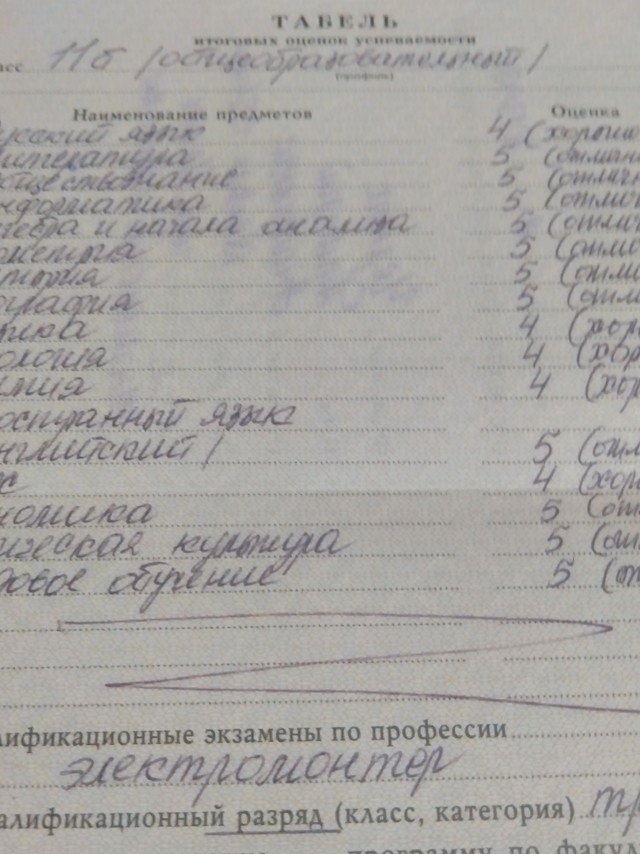 ТАБЕЛЬ
итоговых оценок успеваемости
асс 11б /общеобразовательный/
(профиль)
Наименование предметов Оценка
усский язык 4 (хорошо
итература 5 (отлично
бществознание 5 (отличн
нформатика 5 (отлич
гебра и начала анализа 5 (отлич
ометрия 5 (отли
тория 5 (отли
ография 5 (отли
зика 4 (хор
ология 4 (хор
имия 4 (хор
остранный язык
нглийский/ 5 (отл
4 (хор
номика 5 (от
ическая культура 5 (от
довое обучение 5 (о
лификационные экзамены по профессии
электромонтер
алификационный разряд (класс, категория) тр
программу по факул